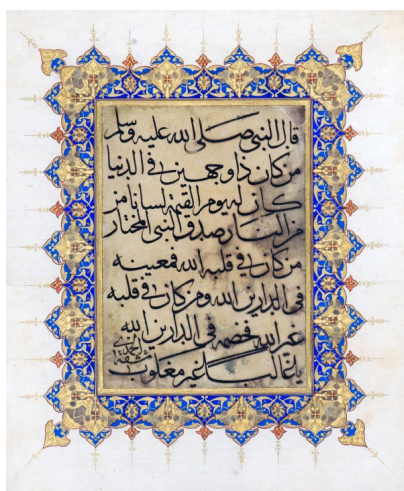 قال النبي صلى الله عليه وسلم
من كان ذا وجهين في الدنيا
كان له يوم القيمة لسانا من
من النار صدق النبي المختار
من كان في قلبه الله فمعينه
في الدارين الله ومن كان في قلبه
غير الله فخصمه في الدارين الله
يا غالبا غير مغلوب